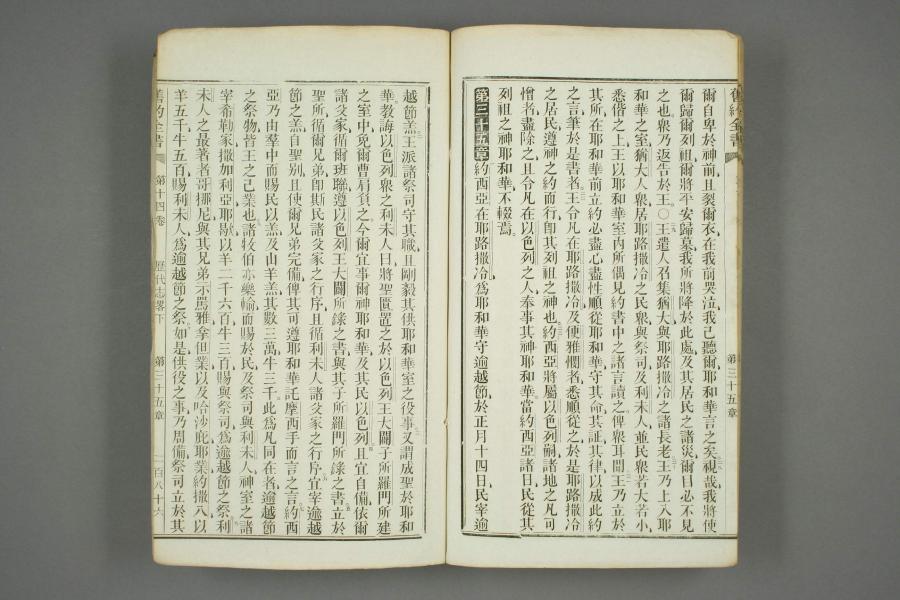 舊約全書
第三十五章
爾自卑於神前且裂爾衣在我前哭泣我已聽爾耶和華言之矣視哉我將使
爾歸爾列祖爾將平安歸墓我所將降於此處及其居民之諸災爾目必不見
之也衆乃返告於王○王遣人召集猶大與耶路撒冷之諸長老王乃上入耶
和華之室猶大人衆居耶路撒冷之民衆與祭司及利未人並民衆若大若小
悉偕之上王以耶和華室內所偶見約書中之諸言讀之俾衆耳聞王乃立於
其所在耶和華前立約必盡心盡性順從耶和華守其命其証其律以成此約
之言筆於是書者王令凡在耶路撒冷及便雅憫者悉順從之於是耶路撒冷
之居民遵神之約而行即其列祖之神也約西亞將屬以色列嗣諸地之凡可
憎者盡除之且令凡在以色列之人奉事其神耶和華當約西亞諸日民從其
列祖之神耶和華不輟焉
第三十五章約西亞在耶路撒冷爲耶和華守逾越節於正月十四日民宰逾
越節羔王派諸祭司守其職且剛毅其供耶和華室之役事又謂成聖於耶和
華教誨以色列衆之利未人曰將聖匱置之於以色列王大闢子所羅門所建
之室中免爾曹肩負之今爾宜事爾神耶和華及其民以色列且宜自備依爾
諸父家循爾班聯遵以色列王大闢所錄之書與其子所羅門所錄之書立於
聖所循爾兄弟即斯民諸父家之行序且循利未人諸父家之行序宜宰逾越
節之羔自聖別且使爾兄弟完備俾其可遵耶和華託摩西手而言之言約西
亞乃由羣中而賜民以羔及山羊羔其數三萬牛三千此爲凡同在者逾越節
之祭物皆王之己業也諸牧伯亦樂輸而賜於民及祭司與利未人神室之諸
宰希勒家撒加利亞耶歇以羊二千六百牛三百賜與祭司爲逾越節之祭利
未人之最著者哥挪尼與其兄弟示罵雅拿但業以及哈沙庇耶業約撒八以
羊五千牛五百賜利未人爲逾越節之祭如是供役之事乃周備祭司立於其
舊約全書
第十四卷
歷代志畧下
第三十五章
一百八十六